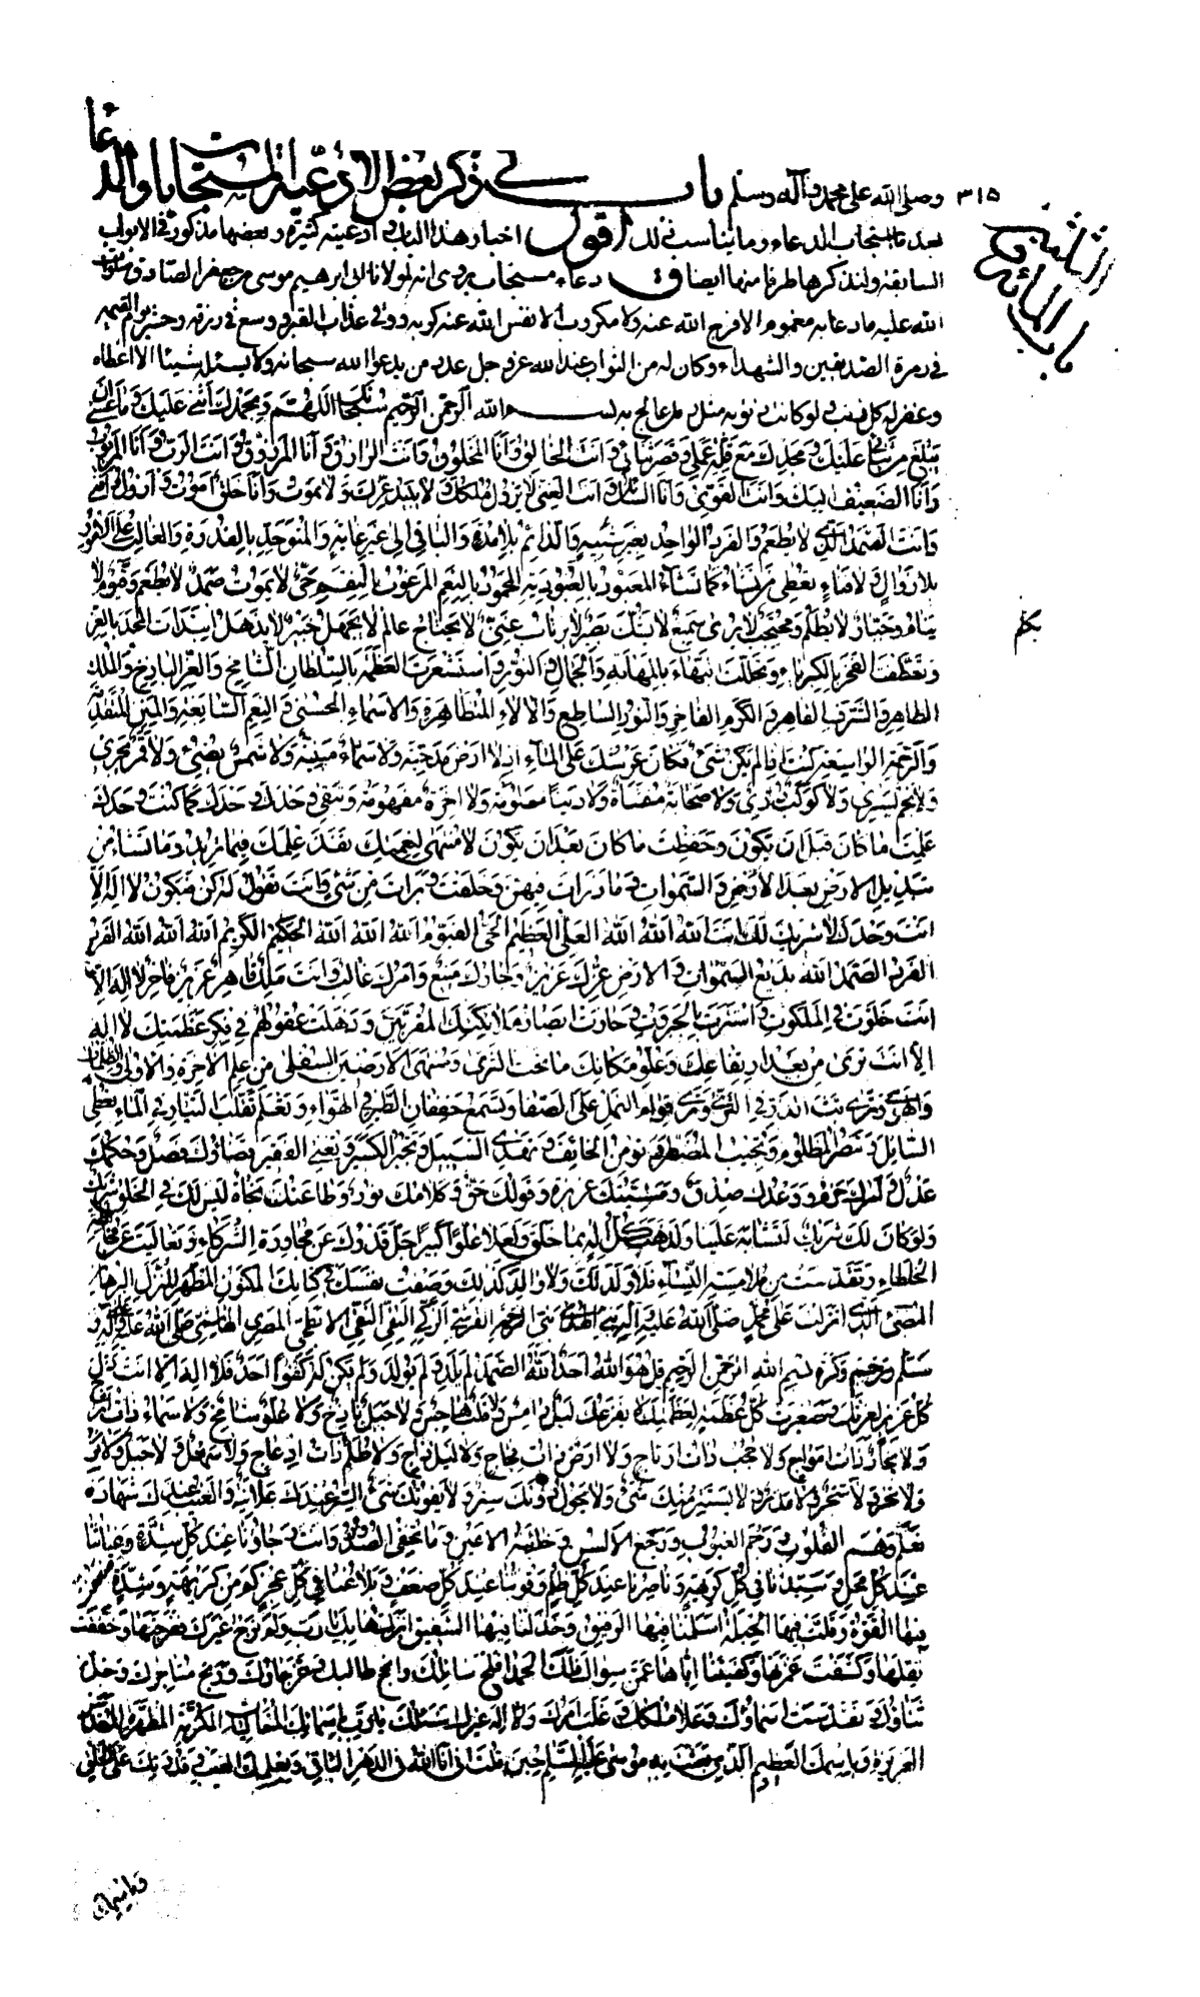 ٣١٥ وصلى الله على محمد وآله وسلم باب في ذكر بعض الادعية المستجابات والدعاء
بعد ما استجاب الدعاء وما يناسب ذلك اقول اخبار هذا الباب وادعيته كثيرة وبعضها مذكور في الابواب
السابقة ولنذكر هاهنا طرفا منها ايضا ق دعاء مستجاب روى انه لمولانا ابي ابرهيم موسى بن جعفر الصادق صلوات
الله عليه ما دعا به مغموم الا فرج الله عنه ولا مكروب الا نفس الله عنه كربه ووقي عذاب القبر ووسع في رزقه وحشر يوم القيمة
في زمرة الصديقين والشهداء وكان له من الثواب عند الله عز وجل عدد من يدعو الله سبحانه ولا يسئله شيئا الا اعطاه
وغفر له كل ذنب ولو كانت ذنوبه مثل رمل عالج بسم الله الرحمن الرحيم سبحانك اللهم وبحمدك اثني عليك وما عسى ان
يبلغ من ثنائي عليك ومجدك مع قلة عملي وقصر ثنائي وانت الخالق وانا المخلوق وانت الرازق وانا المرزوق وانت الرب وانا المربوب
وانا الضعيف اليك وانت القوي وانا السائل وانت الغني لا يزول ملكك ولا يبيد عزك ولا تموت وانا خلق اموت وازول وافنى
وانت الصمد الذي لا يطعم والفرد الواحد بغير شبيه والدائم بلا مدة والباقي الى غير غاية والمتوحد بالقدرة والغالب على الامور
بلا زوال ولا فناء تعطي من تشاء كما تشاء المعبود بالعبودية المحمود بالنعم المرهوب بالنقم حي لا يموت صمد لا يطعم وقيوم لا
ينام وجبار لا يظلم ومحتجب لا يرى سميع لا يشك بصير لا يرتاب غني لا يحتاج عالم لا يجهل خبير لا يذهل ابتدأت المجد بالعز
وتعطفت الفخر بالكبرياء وتجللت البهاء بالمهابة والجمال والنور واستشعرت العظمة بالسلطان الشامخ والعز الباذخ والملك
الظاهر والشرف القاهر والكرم الفاخر والنور الساطع والآلاء المتظاهرة والاسماء الحسنى والنعم السابغة والمنن المتقدمة
والرحمة الواسعة كنت اذ لم يكن شيء فكان عرشك على الماء اذ لا ارض مدحية ولا سماء مبنية ولا شمس تضيء ولا قمر يجري
ولا نجم يسري ولا كوكب دري ولا سحابة منشأة ولا دنيا معلومة ولا اخرة مفهومة وتبقى وحدك وحدك كما كنت وحدك
علمت ما كان قبل ان يكون وحفظت ما كان بعد ان يكون لا منتهى لنعمتك نفذ علمك فيما تريد وما تشاء من
تبديل الارض بعد الارض والسموات وما ذرأت فيهن وخلقت وبرأت من شيء وانت تقول له كن فيكون لا اله الا
انت وحدك لا شريك لك انت الله الله الله العلي العظيم الحي القيوم الله الله الله الحكيم الكريم الله الله الله الفرد
الفرد الصمد الله بديع السموات والارض عزك عزيز وجارك منيع وامرك غالب وانت ملك قاهر عزيز فاخر لا اله الا
انت خلوت في الملكوت واستترت بالجبروت وحارت ابصار ملائكتك المقربين وذهلت عقولهم في فكر عظمتك لا اله
الا انت ترى من بعد ارتفاعك وعلو مكانك ما تحت الثرى ومنتهى الارضين السفلى من علم الاخرة والاولى والظلمات
والهوى وترى بث الذر في الثرى وترى قوام النمل على الصفا وتسمع خفقان الطير في الهواء وتعلم تقلب التيار في الماء تعطي
السائل وتنصر المظلوم وتجيب المضطر وتؤمن الخائف وتهدي السبيل وتجبر الكسير وتغني الفقير قضاؤك فصل وحكمك
عدل وامرك حزم ووعدك صدق ومشيتك عزيزة وقولك حق وكلامك نور وطاعتك نجاة ليس لك في الخلق شريك
ولو كان لك شريك لتشابه علينا ولذهب كل اله بما خلق ولعلا علوا كبيرا جل قدرك عن مجاورة الشركاء وتعاليت عن مخالطة
الخلطاء وتقدست من ملامسة النساء فلا ولد لك ولا والد كذلك وصفت نفسك في كتابك المكنون المطهر المنزل البرهان
المضيء الذي انزلت على محمد صلى الله عليه وآله نبي الرحمة القرشي الزكي التقي النقي الابطحي المضري الهاشمي صلى الله عليه وآله و
سلم ورحم وكرم بسم الله الرحمن الرحيم قل هو الله احد الله الصمد لم يلد ولم يولد ولم يكن له كفوا احد فلا اله الا انت ذل
كل عزيز لعزتك وصغرت كل عظمة لعظمتك لا يفزعك ليل دامس ولا قلب هاجس ولا جبل باذخ ولا علو شامخ ولا سماء ذات ابراج
ولا بحار ذات امواج ولا حجب ذات ارتاج ولا ارض ذات فجاج ولا ليل داج ولا ظلم ذات ادعاج ولا سهل ولا جبل ولا بر
ولا بحر ولا شجر ولا مدر ولا يستتر منك شيء ولا يحول دونك ستر ولا يفوتك شيء السر عندك علانية والغيب عندك شهادة
تعلم وهم القلوب ورجم الغيوب ورجع الالسن وخائنة الاعين وما تخفي الصدور وانت رجاؤنا عند كل شدة وغياثنا
عند كل محل وسيدنا في كل كريهة وناصرنا عند كل ظلم وقوتنا عند كل ضعف وبلاغنا في كل عجز كم من كربة وشدة ضعفت
فيها القوة وقلت فيها الحيلة اسلمنا فيها الرفيق وخذلنا فيها الشفيق انزلتها بك يا رب ولم نرج غيرك ففرجتها وخففت
ثقلها وكشفت غمرتها وكفيتنا اياها عمن سواك فلك الحمد افلح سائلك وانجح طالبك وعز جارك وربح متاجرك وجل
ثناؤك وتقدست اسماؤك وعلا ملكك وغلب امرك ولا اله غيرك اسئلك يا رب باسمائك المتعاليات المكرمة المطهرة المقدسة
العزيزة وباسمك العظيم الذي بعثت به موسى عليه السلم حين قلت اني انا الله في الدهر الباقي وبعلمك الغيب وقدرتك على الخلق
باب المائة و
الثلثين